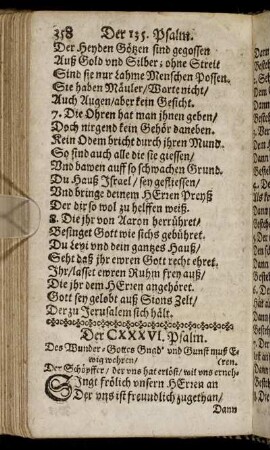 358 Der 135. Psalm.
Der Heyden Götzen sind gegossen
Auß Gold und Silber; ohne Streit
Sind sie nur lahme Menschen Possen.
Sie haben Mäuler/ Worte nicht/
Auch Augen/ aber kein Gesicht.
7. Die Ohren hat man jhnen geben/
Doch nirgend kein Gehör daneben.
Kein Odem bricht durch jhren Mund.
So sind auch alle die sie giessen/
Und bawen auff so schwachen Grund.
Du Hauß Israel/ sey geflissen/
Und bringe deinem HErren Preyß
Der dir so wol zu helffen weiß.
8. Die jhr von Aaron herrühret/
Besinget Gott wie sichs gebühret.
Du Levi und dein gantzes Hauß/
Seht daß jhr ewren Gott recht ehret.
Ihr/ lasset ewren Ruhm frey auß/
Die jhr dem HErren angehöret.
Gott sey gelobt auß Sions Zelt/
Der zu Jerusalem sich hält.
Der CXXXVI. Psalm.
Des Wunder-Gottes Gnad' und Gunst muß E-
wig wehren/ (ren.
Der Schöpffer/ der uns hat erlöst/ wil uns erneh-
Singt frölich unserm HErren an
Der uns ist freundlich zugethan/
Dann